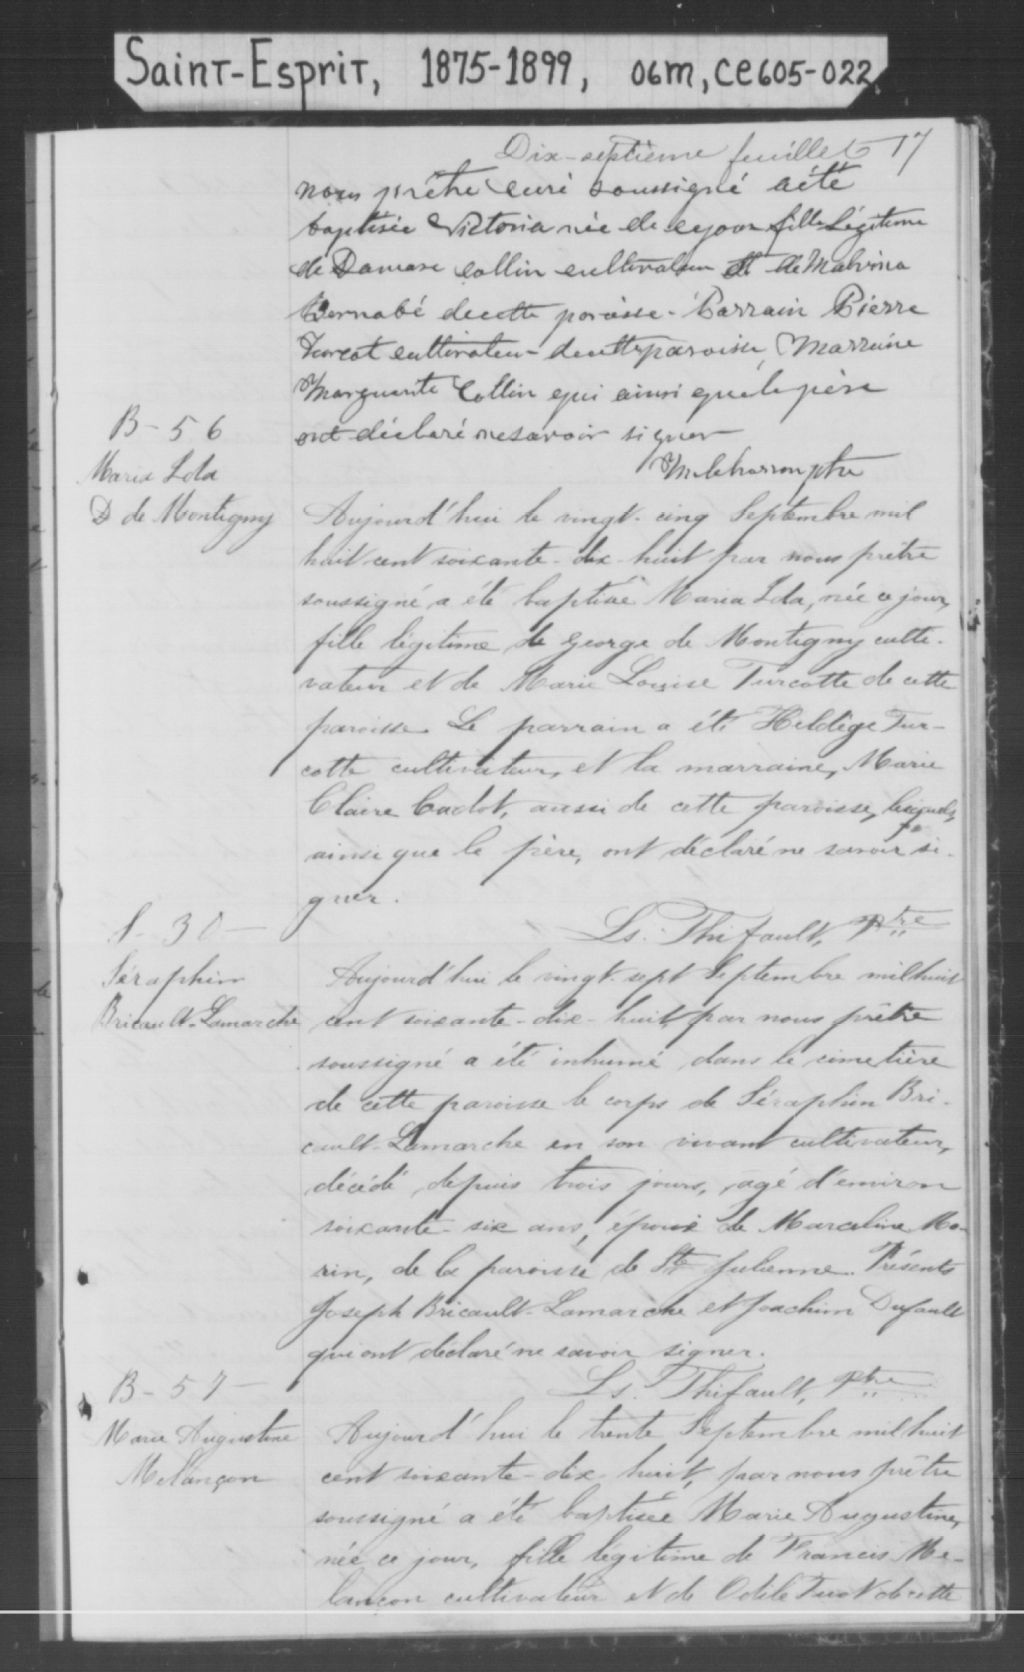 Saint-Esprit, 1875-1899, 06m, ce605-022.
Dix-septième feuillet 17
nous prêtre curé soussigné a été
baptisée Victoria née de ce jour fille légitime
de Damase Collin cultivateur et de Malvina
Bernabé de cette paroisse - Parrain Pierre
cultivateur de cette paroisse, Marraine
Marguerite Collin qui ainsi que le père
B - 56
ont déclaré ne savoir signer
Maria Ida
ptre
D de Montigny
Aujourd'hui le vingt-cinq Septembre mil
huit cent soixante-dix-huit par nous prêtre
soussigné a été baptisée Maria Ida, née ce jour,
fille légitime de George de Montigny culti-
vateur et de Marie Louise Turcotte de cette
paroisse. Le parrain a été Heldège Tur-
cotte cultivateur, et la marraine, Marie
Claire Cadot, aussi de cette paroisse, lesquels,
ainsi que le père, ont déclaré ne savoir si-
gner.
Ls. Thifault, Ptre
S - 30 -
Séraphin
Bricault-Lamarche
Aujourd'hui le vingt-sept Septembre mil huit
cent soixante-dix-huit, par nous prêtre
soussigné a été inhumé dans le cimetière
de cette paroisse le corps de Séraphin Bri-
cault-Lamarche en son vivant cultivateur,
décédé depuis trois jours, agé d'environ
soixante-six ans, époux de Marceline Mo-
rin, de la paroisse de Ste Julienne. Présents
Joseph Bricault-Lamarche et Joachim Dufault
qui ont déclaré ne savoir signer.
Ls. Thifault, Ptre
B - 57 -
Marie Augustine
Melançon
Aujourd'hui le trente Septembre mil huit
cent soixante-dix-huit, par nous prêtre
soussigné a été baptisée Marie Augustine,
née ce jour, fille légitime de Francis Me-
lançon cultivateur et de Odile de cette